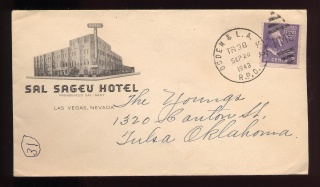 SAL SAGEV HOTEL
LAS VEGAS, NEVADA
OGDEN & L.A.
TR 38
SEP 20
1943
R.P.O.
The Youngs
1320 Canton St.
Tulsa Oklahoma.
31